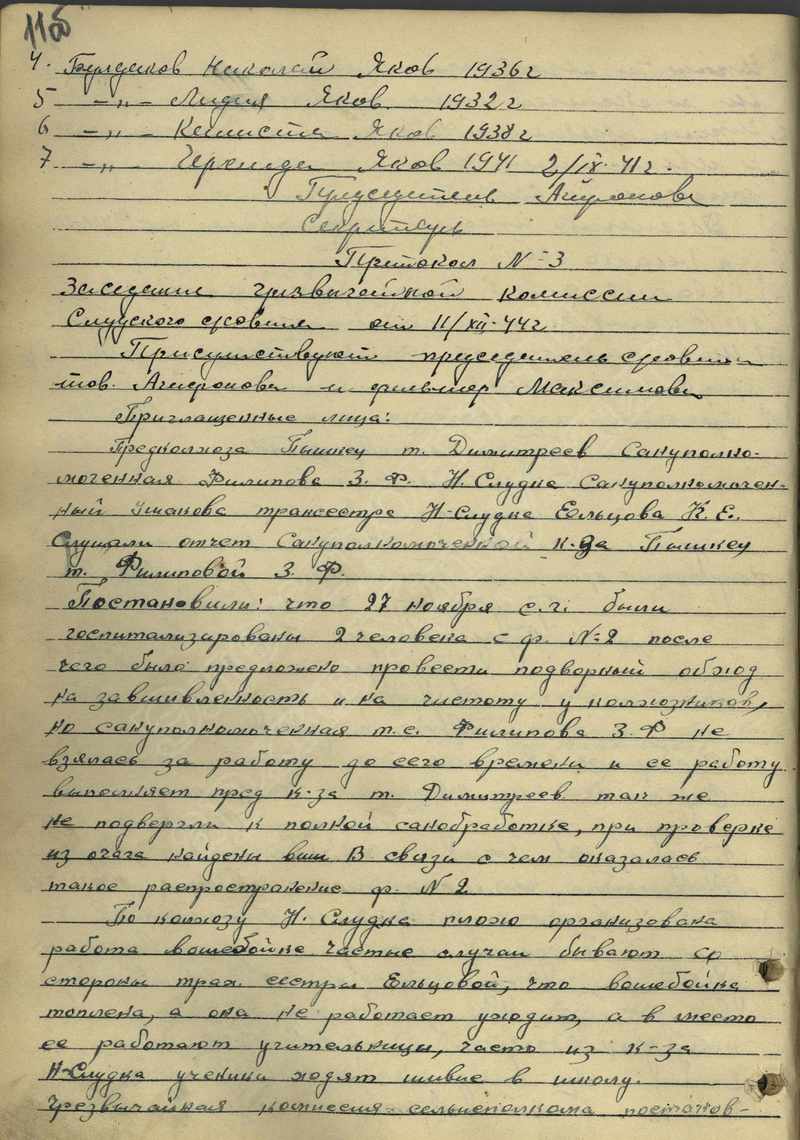 11об
4. Булдаков Николай Яков 1936 г
5 —„— Лидия Яков. 1932 г
6 —„— Яков 1938 г
7 —„— Яков 1941 2/IX-41 г.
Председатель Агафонова
Секретарь
Протокол № 3
Заседание чрезвычайной комиссии
Слудского с/совета от 11/XII-44 г
Присутствуют председатель с/совета
тов. Агафонова и фельшер Максимова
Приглашенные лица:
Предколхоза Пышкец т. Димитреев Сануполно-
моченная Филипова З. Ф. Н. Слудка Сануполномочен-
ный Ушакова трахсестра Н-Слудка Ельцова К. Е.
Слушали отчет Сануполномоченной к-за Пышкец
т. Филиповой З. Ф.
Постановили: что 27 ноября с. г. были
госпитализированы 2 человека с ф. № 2 после
чего было предложено провести подворный обход
на завшивленность и на чистоту у колхозников,
но сануполномоченная т. е. Филипова З. Ф не
взялась за работу до сего времени и ее работу
выполняет пред к-за т. Димитреев так же
не подвергли к полной санобработке, при проверке
из очага найдены вши В связи с чем оказалась
такое распространение ф. № 2
По колхозу Н. Слудка плохо организована
работа вошебойке частые случаи бывают со
стороны трах сестры Ельцовой, что вошебойка
топлена, а она не работает уходит, а в место
ее работают учительницы, часто из к-за
Н-Слудка ученики ходят шивые в школу.
Чрезвычайная комиссия сельисполкома постанов-